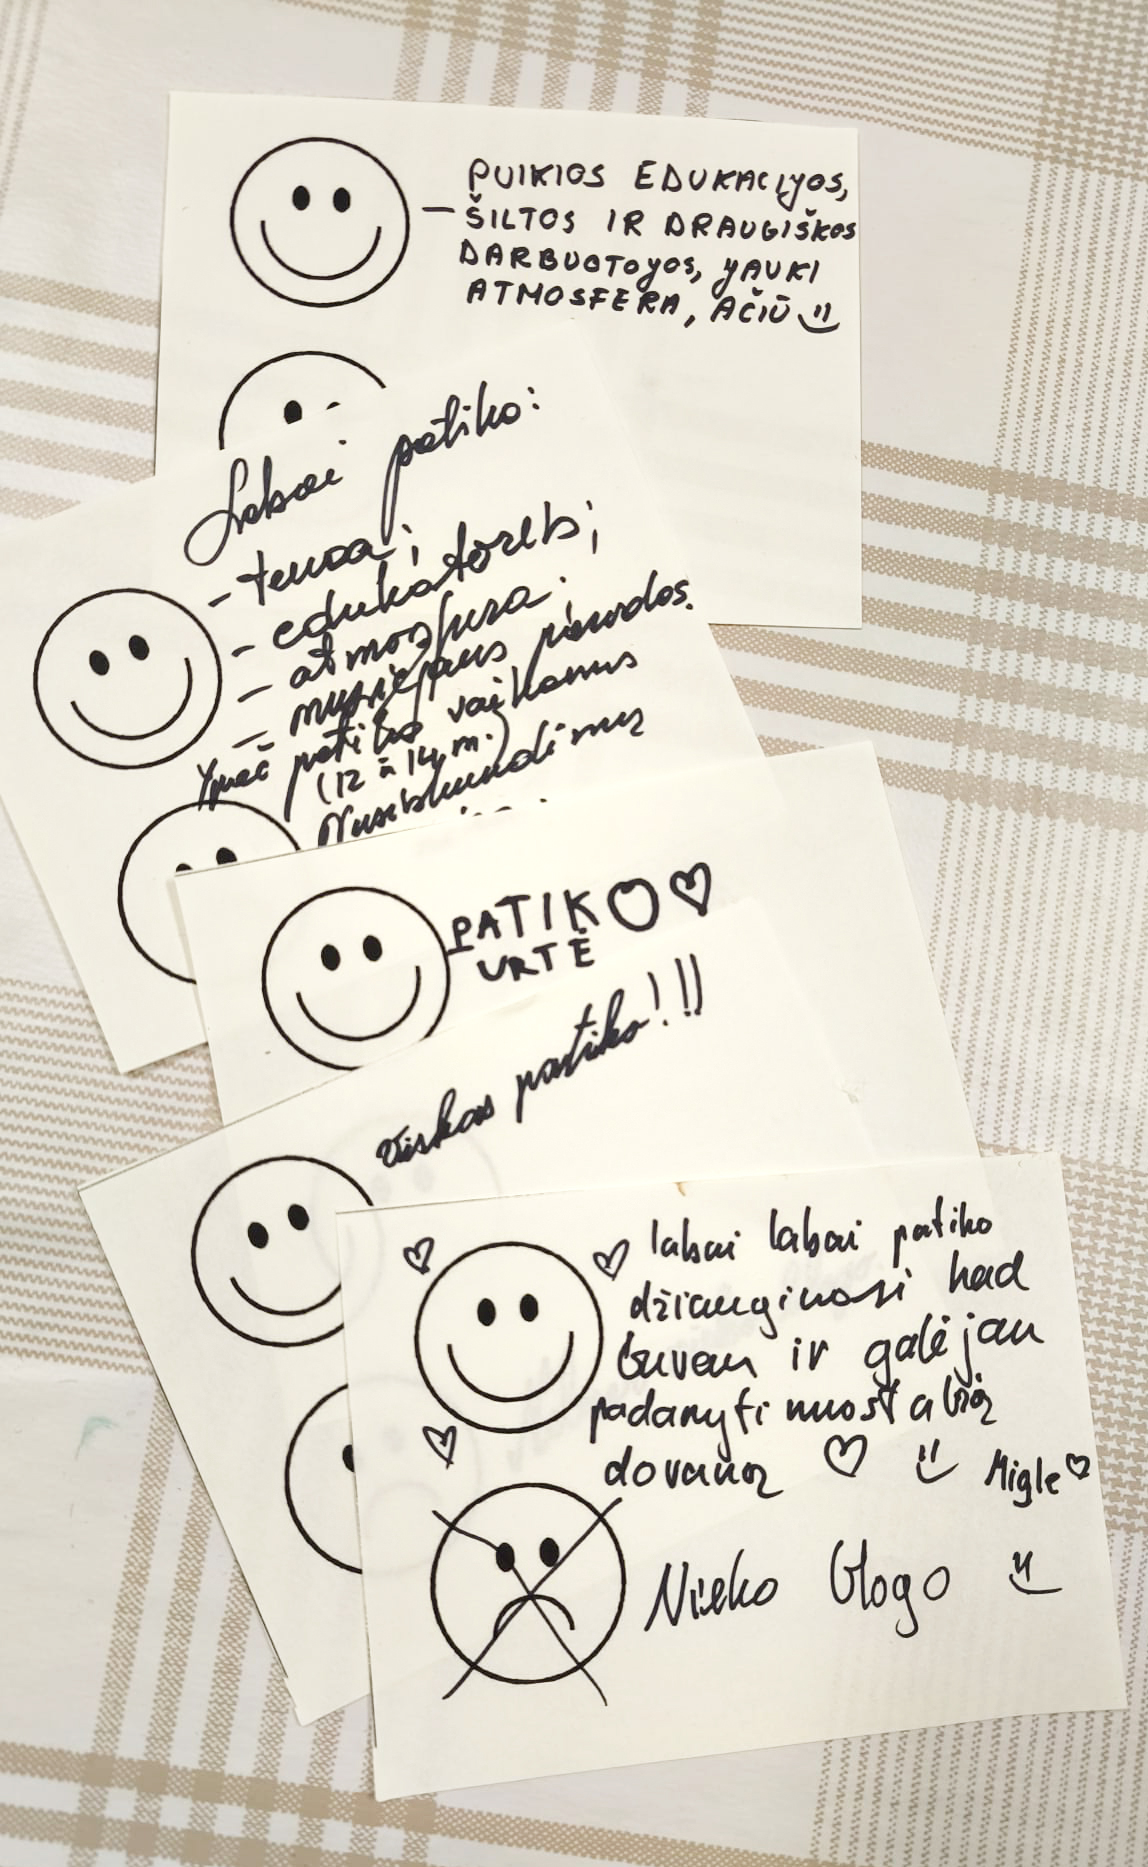 – PUIKIOS EDUKACIJOS,
ŠILTOS IR DRAUGIŠKOS
DARBUOTOJOS, JAUKI
ATMOSFERA, AČIŪ
Labai patiko:
- tema;
- edukatorės;
- atmosfera;
- muziejaus
Ypač patiko vaikams
(12 ir 14 m.)
PATIKO
URTĖ
Viskas patiko!!!
labai labai patiko
džiauginosi kad
buvau ir galėjau
padaryti nuostabią
dovaną
Migle
Nieko blogo